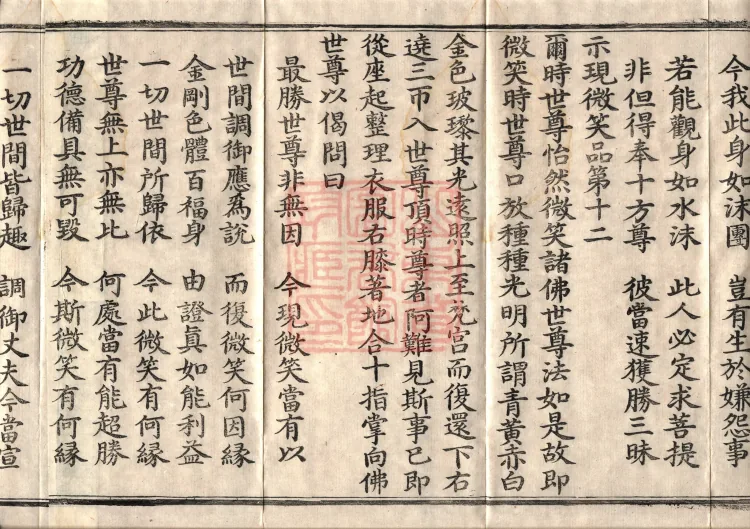 今我此身如沫團　豈有生於嫌怨事
若能觀身如水沫　此人必定求菩提
非但得奉十方尊　彼當速獲勝三昧
示現微笑品第十二
爾時世尊怡然微笑諸佛世尊法如是故即
微笑時世尊口放種種光明所謂青黃赤白
金色玻瓈其光遠照上至梵宮而復還下右
遶三帀入世尊頂時尊者阿難見斯事已即
從座起整理衣服右膝著地合十指掌向佛
世尊以偈問曰
最勝世尊非無因　今現微笑當有以
世間調御應爲説　而復微笑何因緣
金剛色體百福身　由證眞如能利益
一切世間所歸依　今此微笑有何緣
世尊無上亦無比　何處當有能超勝
功德備具無可毀　今斯微笑有何緣
一切世間皆歸趣　調御丈夫今當宣